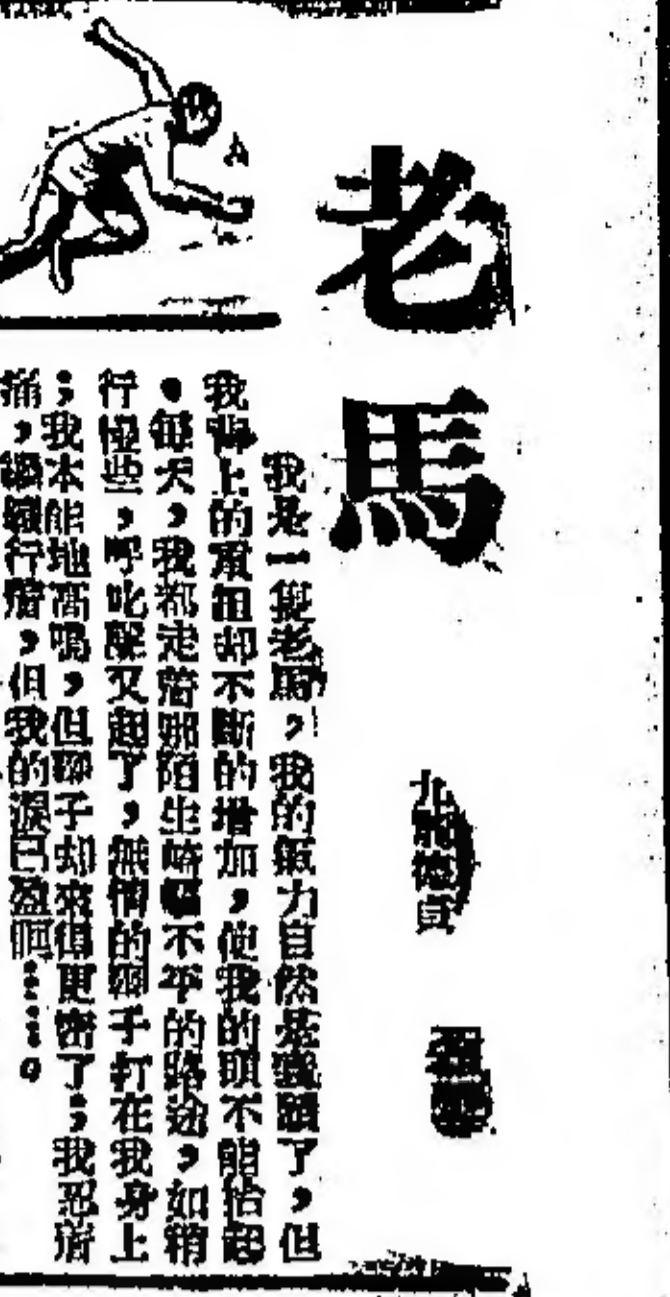 老馬
九龍德貞
我是一隻老馬，我的氣力自然是衰頹了，但
我背上的重担却不斷的增加，使我的頭不能抬起
。每天，我都走着那陌生崎嶇不平的路途，如稍
行慢些，呼叱聲又起了，無情的鞭子打在我身上
；我本能地高鳴，但鞭子却來得更密了；我忍着
痛，繼續行着，但我的淚已盈眶……。